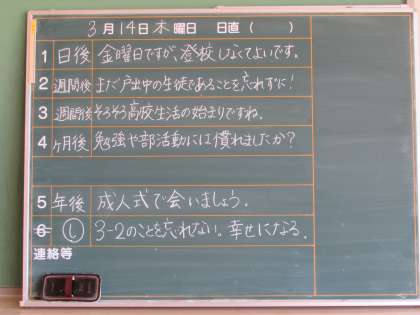 3月14日木曜日 日直( )
1 日後 金曜日ですが、登校しなくてよいです。
2 週間後 まだ戸出中の生徒であることを忘れずに!
3 週間後 そろそろ高校生活の始まりですね。
4 ヶ月後 勉強や部活動には慣れましたか?
5 年後 成人式で会いましょう。
6 し 3-2のことを忘れない。幸せになる。
連絡等